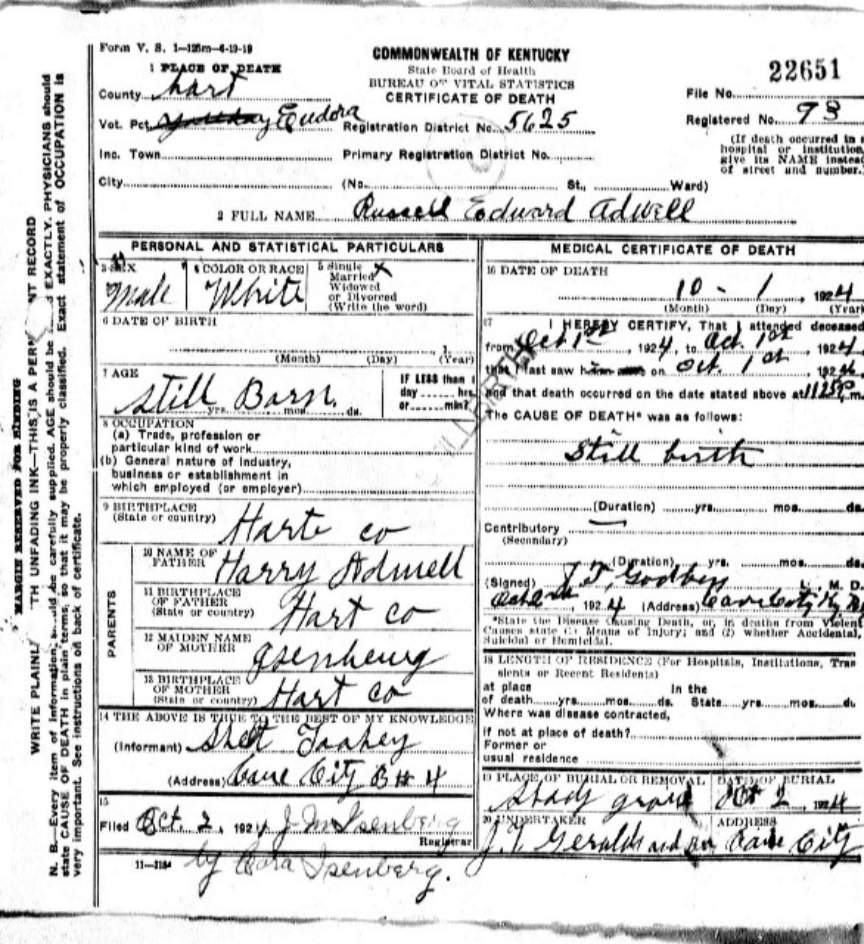 Form V. S. 1—125m—4-19-19
COMMONWEALTH OF KENTUCKY
State Board of Health
BUREAU OF VITAL STATISTICS
CERTIFICATE OF DEATH
22651
File No.
Registered No. 98
(If death occurred in
hospital or institution,
give its NAME instead
of street and number.
1 PLACE OF DEATH
County Hart
Vot. Pct. Eudora
Registration District No. 5625
Inc. Town
Primary Registration District No.
City
(No. St., Ward)
2 FULL NAME Russell Edward Adwell
PERSONAL AND STATISTICAL PARTICULARS
3 SEX Male
4 COLOR OR RACE White
5 Single
Married
Widowed
or Divorced
(Write the word)
6 DATE OF BIRTH
(Month) (Day) (Year)
7 AGE
Still Born
yrs. mos. ds.
IF LESS than 1
day hrs.
or min?
8 OCCUPATION
(a) Trade, profession or
particular kind of work
(b) General nature of industry,
business or establishment in
which employed (or employer)
9 BIRTHPLACE
(State or country) Harte co
PARENTS
10 NAME OF
FATHER Harry Adwell
11 BIRTHPLACE
OF FATHER
(State or country) Hart co
12 MAIDEN NAME
OF MOTHER
13 BIRTHPLACE
OF MOTHER
(State or country) Hart co
14 THE ABOVE IS TRUE TO THE BEST OF MY KNOWLEDGE
(Informant)
(Address) Cave City R# 4
15
Filed Oct. 2, 1924 J M Isenberg
Registrar
11—3184 by Cora Isenberg.
MEDICAL CERTIFICATE OF DEATH
16 DATE OF DEATH
10 - 1, 1924
(Month) (Day) (Year)
17 I HEREBY CERTIFY, That I attended deceased
from Oct 1st, 1924, to Oct. 1st, 1924,
that I last saw on Oct. 1st, 1924,
and that death occurred on the date stated above at m.
The CAUSE OF DEATH* was as follows:
Still birth
(Duration) yrs. mos. ds.
Contributory
(Secondary)
(Duration) yrs. mos. ds.
(Signed) M. D.
1924 (Address) Cave City Ky
*State the Disease Causing Death, or, in deaths from Violent
Causes state (1) Means of Injury; and (2) whether Accidental,
Suicidal or Homicidal.
18 LENGTH OF RESIDENCE (For Hospitals, Institutions, Tran
sients or Recent Residents)
at place In the
of death yrs. mos. ds. State yrs. mos. ds.
Where was disease contracted,
if not at place of death?
Former or
usual residence
19 PLACE OF BURIAL OR REMOVAL
Shady grove
DATE OF BURIAL
Oct 2, 1924
20 UNDERTAKER
J. T. Geralds and son
ADDRESS
Cave City
MARGIN RESERVED FOR BINDING
WRITE PLAINLY TH UNFADING INK—THIS IS A PERM NT RECORD
N. B.—Every item of information should be carefully supplied. AGE should be EXACTLY. PHYSICIANS should
state CAUSE OF DEATH in plain terms, so that it may be properly classified. Exact statement of OCCUPATION is
very important. See instructions on back of certificate.